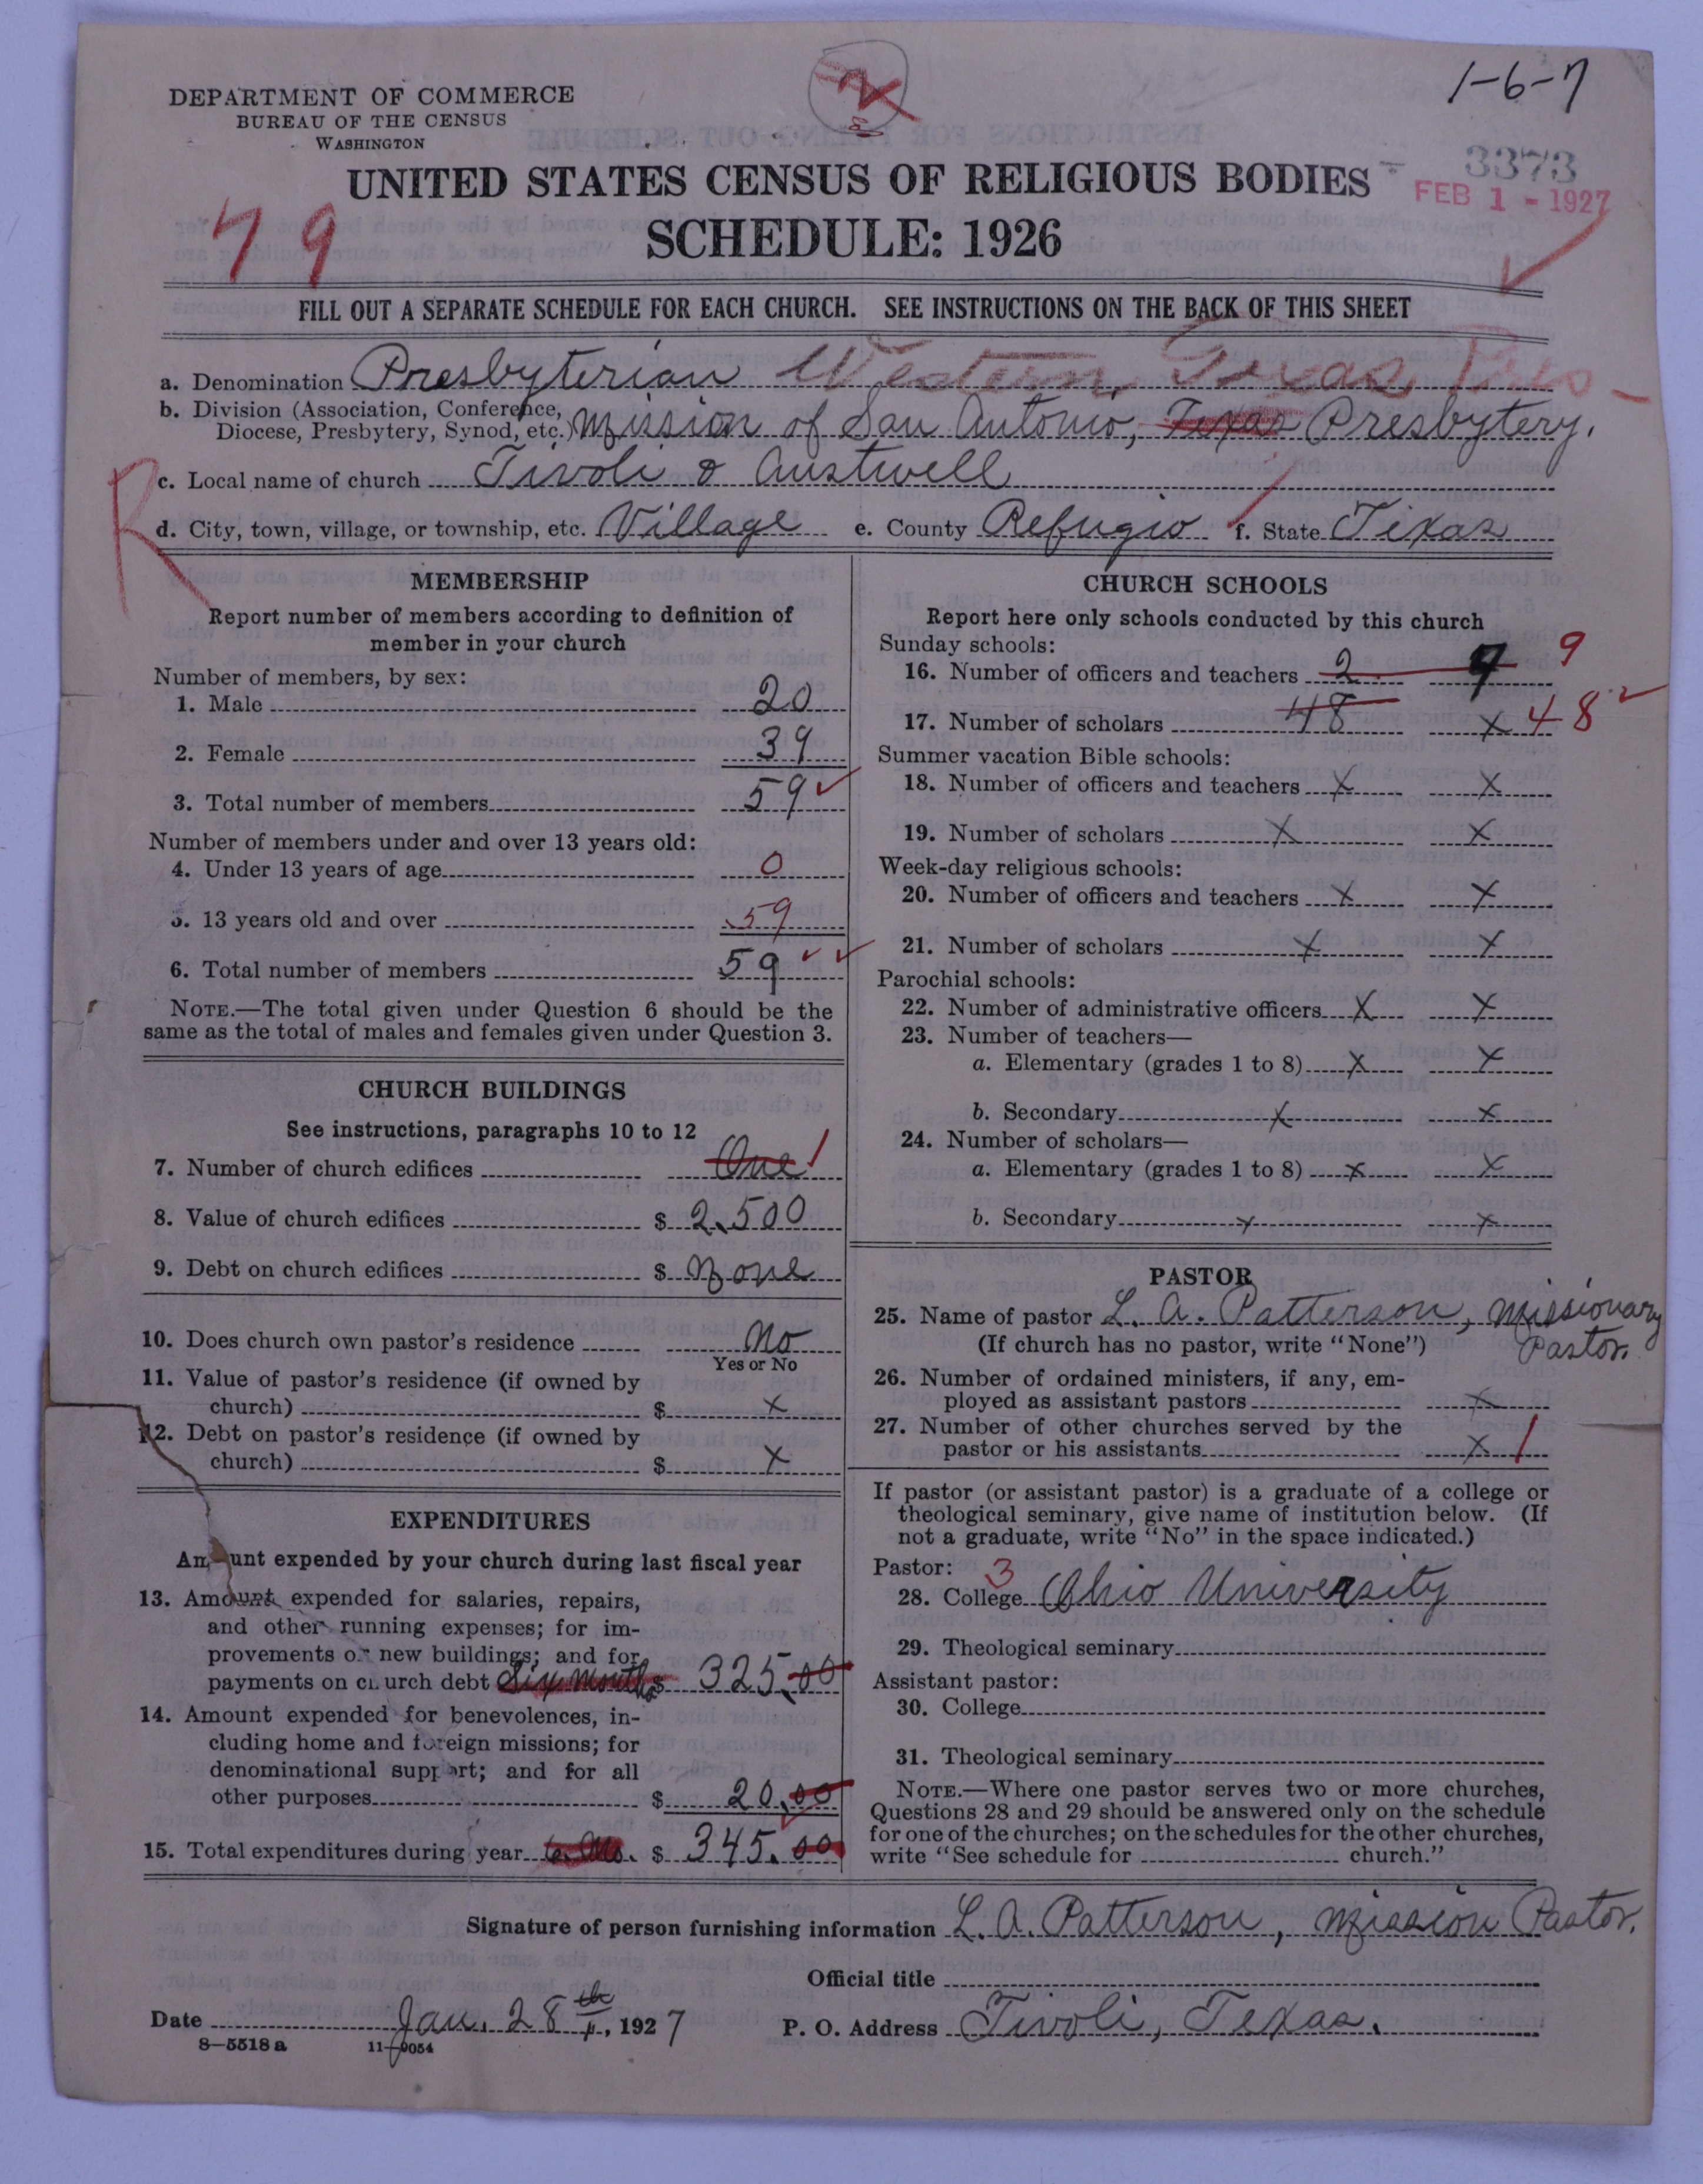 1-6-7
DEPARTMENT OF COMMERCE
BUREAU OF THE CENSUS
WASHINGTON
3373
FEB 1 - 1927
UNITED STATES CENSUS OF RELIGIOUS BODIES
SCHEDULE: 1926
79
FILL OUT A SEPARATE SCHEDULE FOR EACH CHURCH. SEE INSTRUCTIONS ON THE BACK OF THIS SHEET
a. Denomination Presbyterian Western Texas, Pres-
b. Division (Association, Conference,
Diocese, Presbytery, Synod, etc.) Mission of San Antonio, Texas Presbytery.
c. Local name of church Tivoli & Austwell
R
d. City, town, village, or township, etc. Village e. County Refugio f. State Texas
MEMBERSHIP
Report number of members according to definition of
member in your church
Number of members, by sex:
1. Male 20
2. Female 39
3. Total number of members 59
Number of members under and over 13 years old:
4. Under 13 years of age 0
5. 13 years old and over 59
6. Total number of members 59
NOTE.—The total given under Question 6 should be the
same as the total of males and females given under Question 3.
CHURCH BUILDINGS
See instructions, paragraphs 10 to 12
7. Number of church edifices One 1
8. Value of church edifices $ 2,500
9. Debt on church edifices $ None
10. Does church own pastor's residence No
Yes or No
11. Value of pastor's residence (if owned by
church) $ X
12. Debt on pastor's residence (if owned by
church) $ X
EXPENDITURES
Amount expended by your church during last fiscal year
13. Amount expended for salaries, repairs,
and other running expenses; for im-
provements or new buildings; and for
payments on church debt Six Months $ 325.00
14. Amount expended for benevolences, in-
cluding home and foreign missions; for
denominational support; and for all
other purposes $ 20.00
15. Total expenditures during year 6. Mo. $ 345.00
CHURCH SCHOOLS
Report here only schools conducted by this church
Sunday schools:
16. Number of officers and teachers 2 9 9
17. Number of scholars 48 X 48
Summer vacation Bible schools:
18. Number of officers and teachers X X
19. Number of scholars X X
Week-day religious schools:
20. Number of officers and teachers X X
21. Number of scholars X X
Parochial schools:
22. Number of administrative officers X X
23. Number of teachers—
a. Elementary (grades 1 to 8) X X
b. Secondary X X
24. Number of scholars—
a. Elementary (grades 1 to 8) X X
b. Secondary X X
PASTOR
25. Name of pastor L. A. Patterson, Missionary
(If church has no pastor, write "None") Pastor.
26. Number of ordained ministers, if any, em-
ployed as assistant pastors X
27. Number of other churches served by the
pastor or his assistants X 1
If pastor (or assistant pastor) is a graduate of a college or
theological seminary, give name of institution below. (If
not a graduate, write "No" in the space indicated.)
Pastor: 3
28. College Ohio University
29. Theological seminary
Assistant pastor:
30. College
31. Theological seminary
NOTE.—Where one pastor serves two or more churches,
Questions 28 and 29 should be answered only on the schedule
for one of the churches; on the schedules for the other churches,
write "See schedule for church."
Signature of person furnishing information L. A. Patterson, Mission Pastor.
Official title
Date Jan. 28th, 1927 P. O. Address Tivoli, Texas.
8—5518 a 11—9054